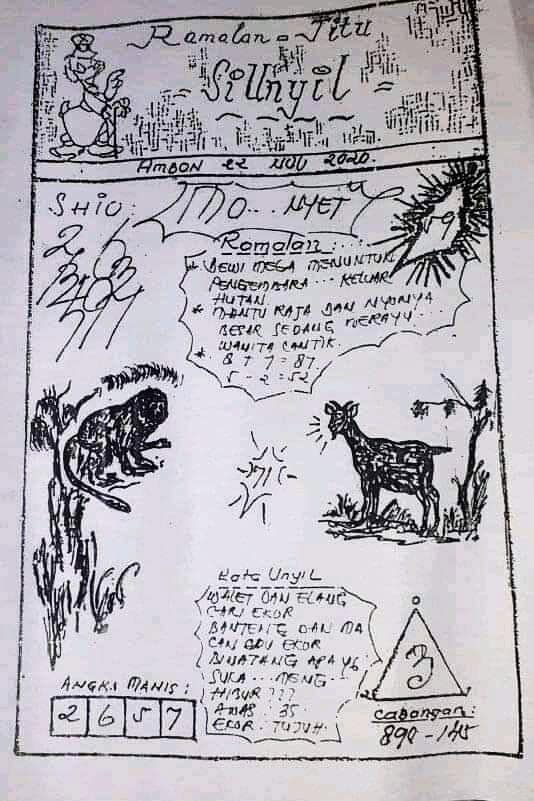 Ramalan = Jitu
= SiUnyil =
AMBON 22 NOV 2020
SHIO :
MO... NYET
Ramalan
* DEWI MEGA MENUNTUN
PENGEMBARA ... KELUAR
HUTAN.
* MANTU RAJA DAN NYONYA
BESAR SEDANG MERAYU...
WANITA CANTIK.
* 8 + 7 = 87.
5 - 2 = 52
Kata UnyiL
WALET DAN ELANG
CARI EKOR
BANTENG DAN MA
CAN ADU EKOR
BINATANG APA YG
SUKA... MENG-
HIBUR ???
AWAS : 35
EKOR : TUJUH.
3
ANGKA MANIS :
2 6 5 7
Cabangan :
890 - 145